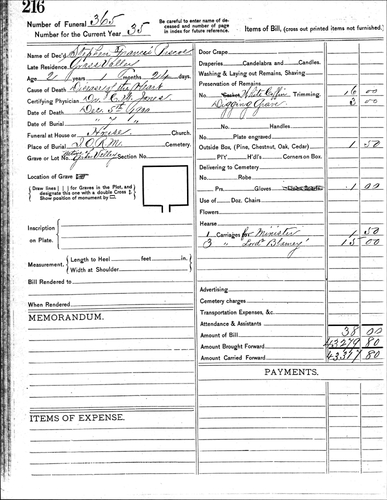 216
Number of Funeral 365
Number for the Current Year 35
Be careful to enter name of deceased and number of page in index for future reference.
Items of Bill, (cross out printed items not furnished.)
Name of Dec'd Stephen Francis
Late Residence, Grass Valley
Age 2 years 1 months days.
Cause of Death Disease of the Heart
Certifying Physician Dr. C. W. Jones
Date of Death
Date of Burial " "
Funeral at House or House Church.
Place of Burial I.O.R.M. Cemetery.
Grave or Lot No. Section No.
Location of Grave
Draw lines | | | for Graves in the Plot, and designate this one with a double Cross. Show position of monument by
Inscription on Plate.
Measurement, Length to Heel feet in.
Width at Shoulder
Bill Rendered to
When Rendered
MEMORANDUM.
ITEMS OF EXPENSE.
Door Crape
Draperies Candelabra and Candles.
Washing & Laying out Remains, Shaving
Preservation of Remains
No. White Coffin Trimming. 16 00
Digging Grave 3 00
No. Handles
No. Plate engraved
Outside Box (Pine, Chestnut, Oak, Cedar) 1 50
P!Y H'd!s Corners on Box.
Delivering to Cemetery
No. Robe
Prs. Gloves 1 00
Use of Doz. Chairs
Flowers
Hearse
1 Carriages for Minister 1 50
3 " 15 00
Advertising
Cemetery charges
Transportation Expenses, &c
Attendance & Assistants
Amount of Bill 38 00
Amount Brought Forward 43279 80
Amount Carried Forward 80
PAYMENTS.